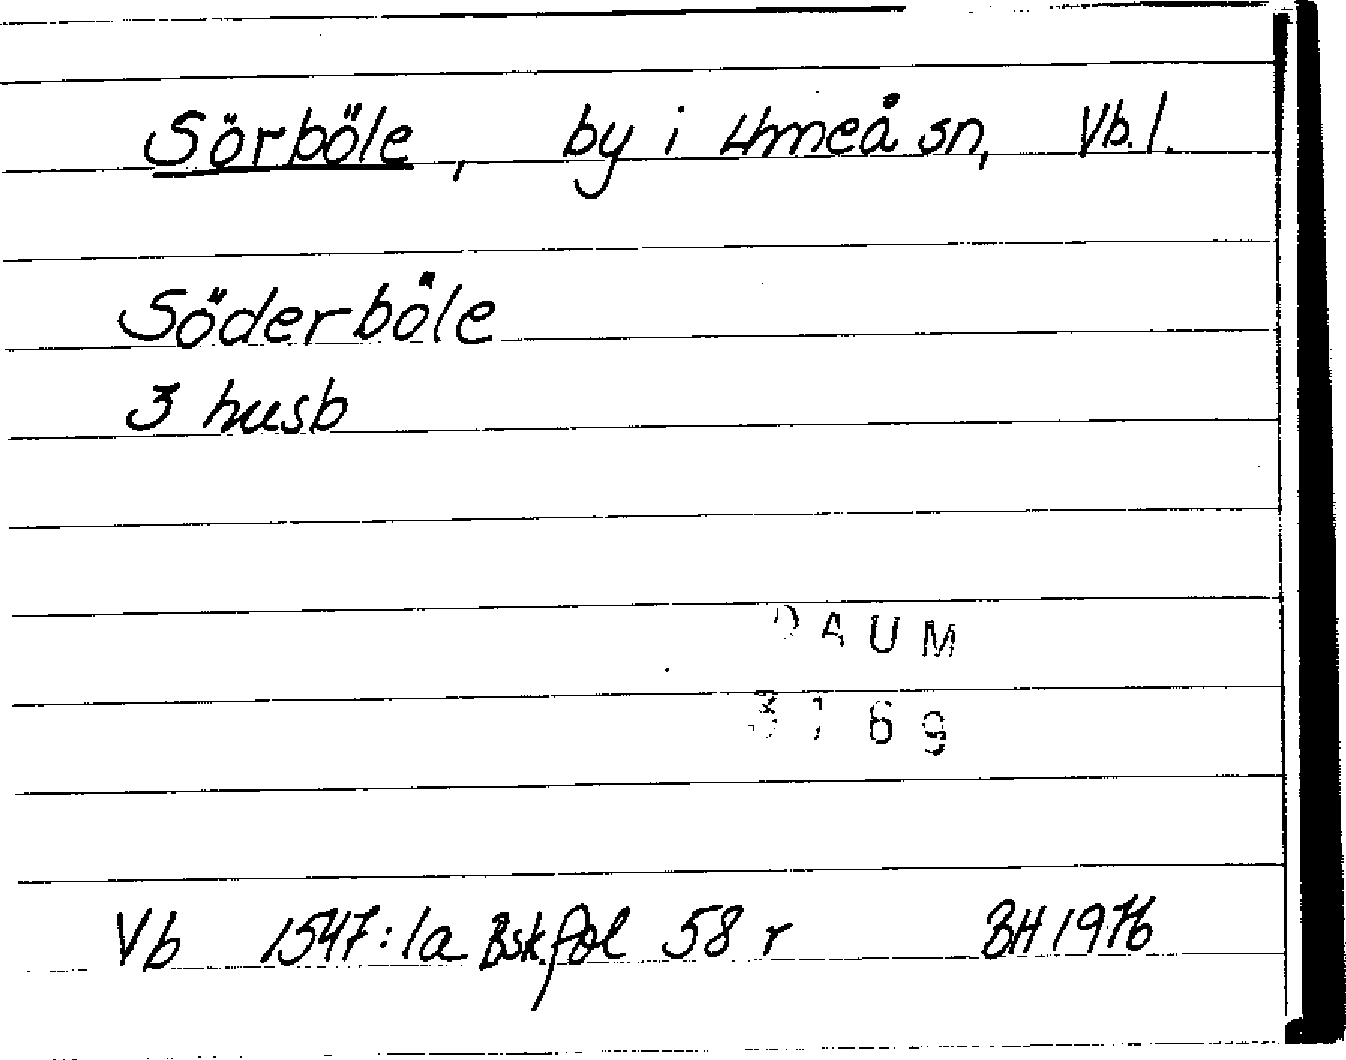 Sörböle, by i Umeå sn, Vb. l.
Söderböle
3 husb
DAUM
3769
Vb 1547:1a Bsk. fol 58 r BH 1976